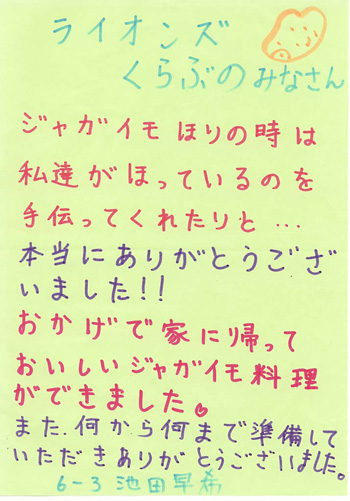 ライオンズ
くらぶのみなさん
ジャガイモほりの時は
私達がほっているのを
手伝ってくれたりと…
本当にありがとうござ
いました!!
おかげで家に帰って
おいしいジャガイモ料理
ができました。
また、何から何まで準備して
いただきありがとうございました。
6-3 池田早希